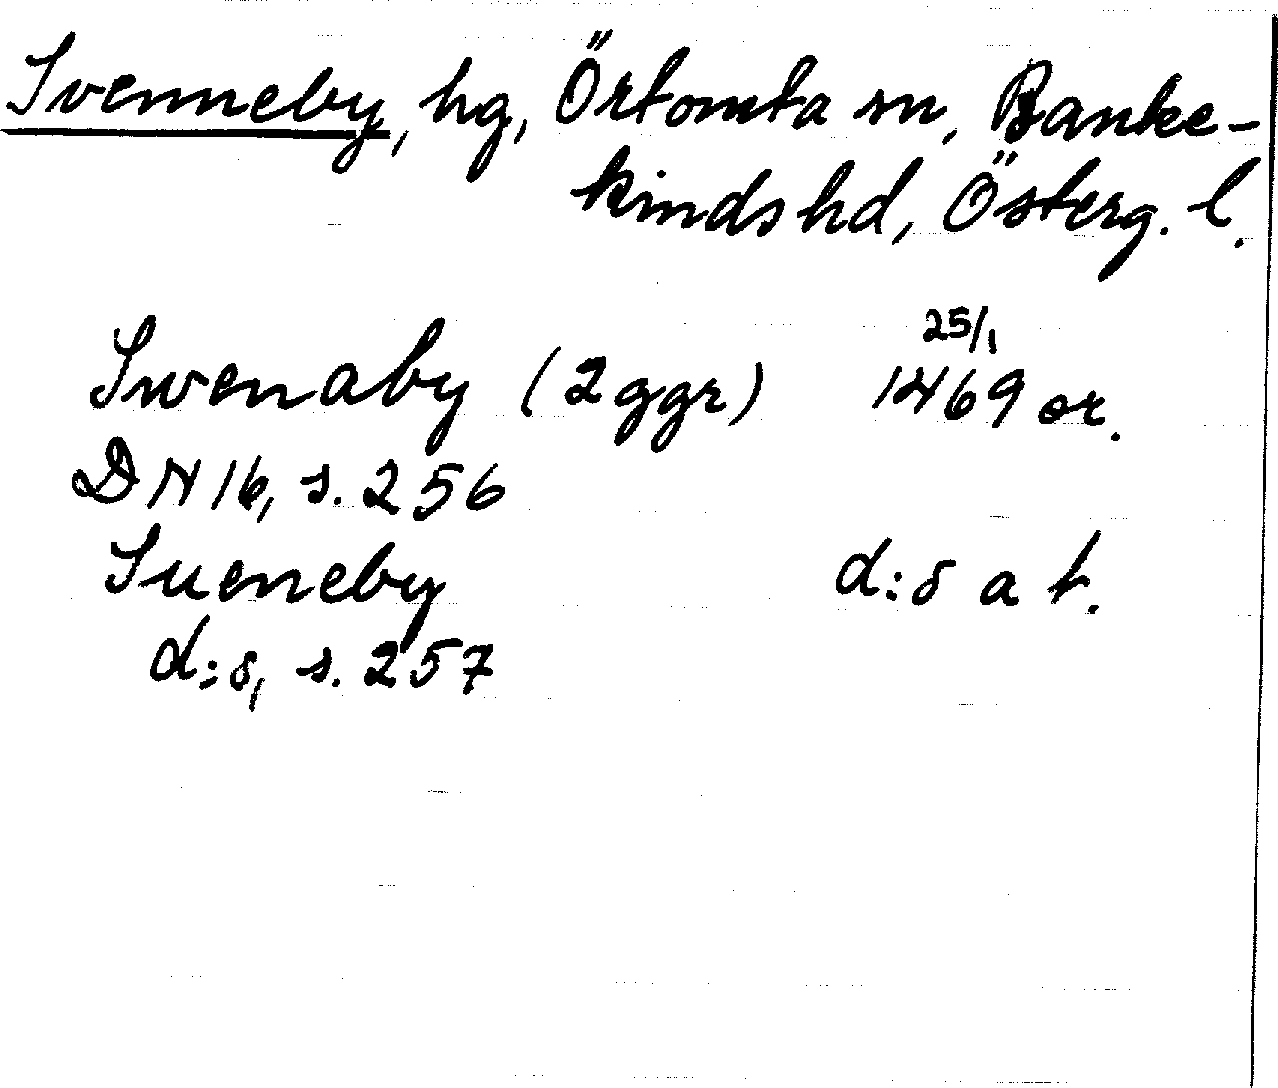 Svenneby, hg, Örtomta sn, Banke-
kinds hd, Österg. l.
Swenaby (2 ggr) 25/1 1469 or.
DN 16, s. 256
Sueneby d:o a t.
d:o, s. 257